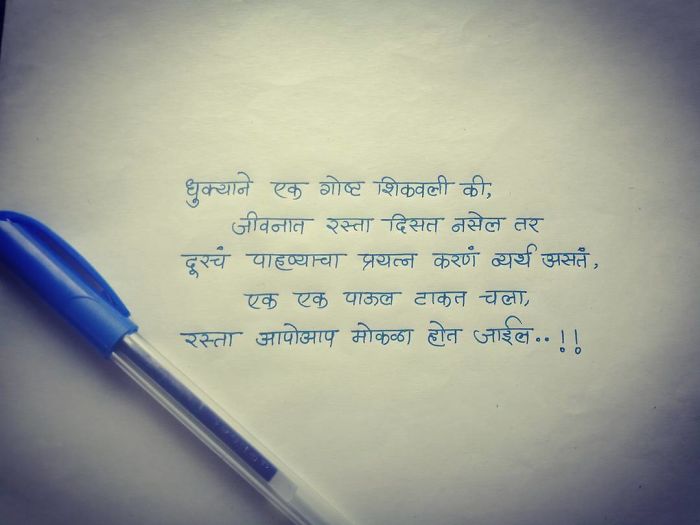 धुक्याने एक गोष्ट शिकवली की,
जीवनात रस्ता दिसत नसेल तर
दूरचं पाहण्याचा प्रयत्न करणं व्यर्थ असतं,
एक एक पाऊल टाकत चला,
रस्ता आपोआप मोकळा होत जाईल..!!